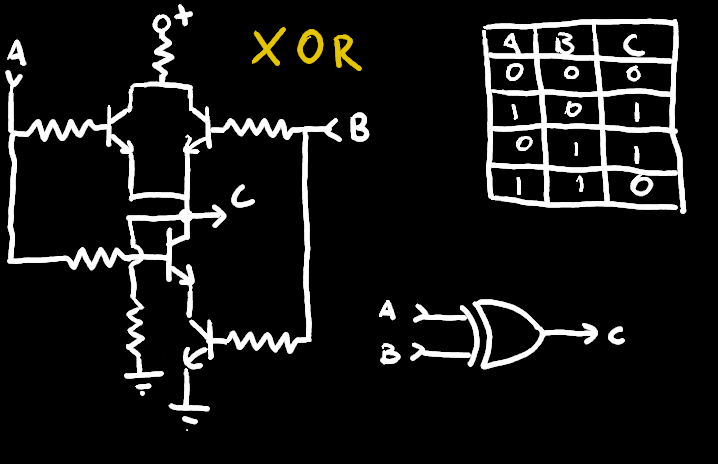 +
XOR
A
B
C
A B C
0 0 0
1 0 1
0 1 1
1 1 0
A
B
C